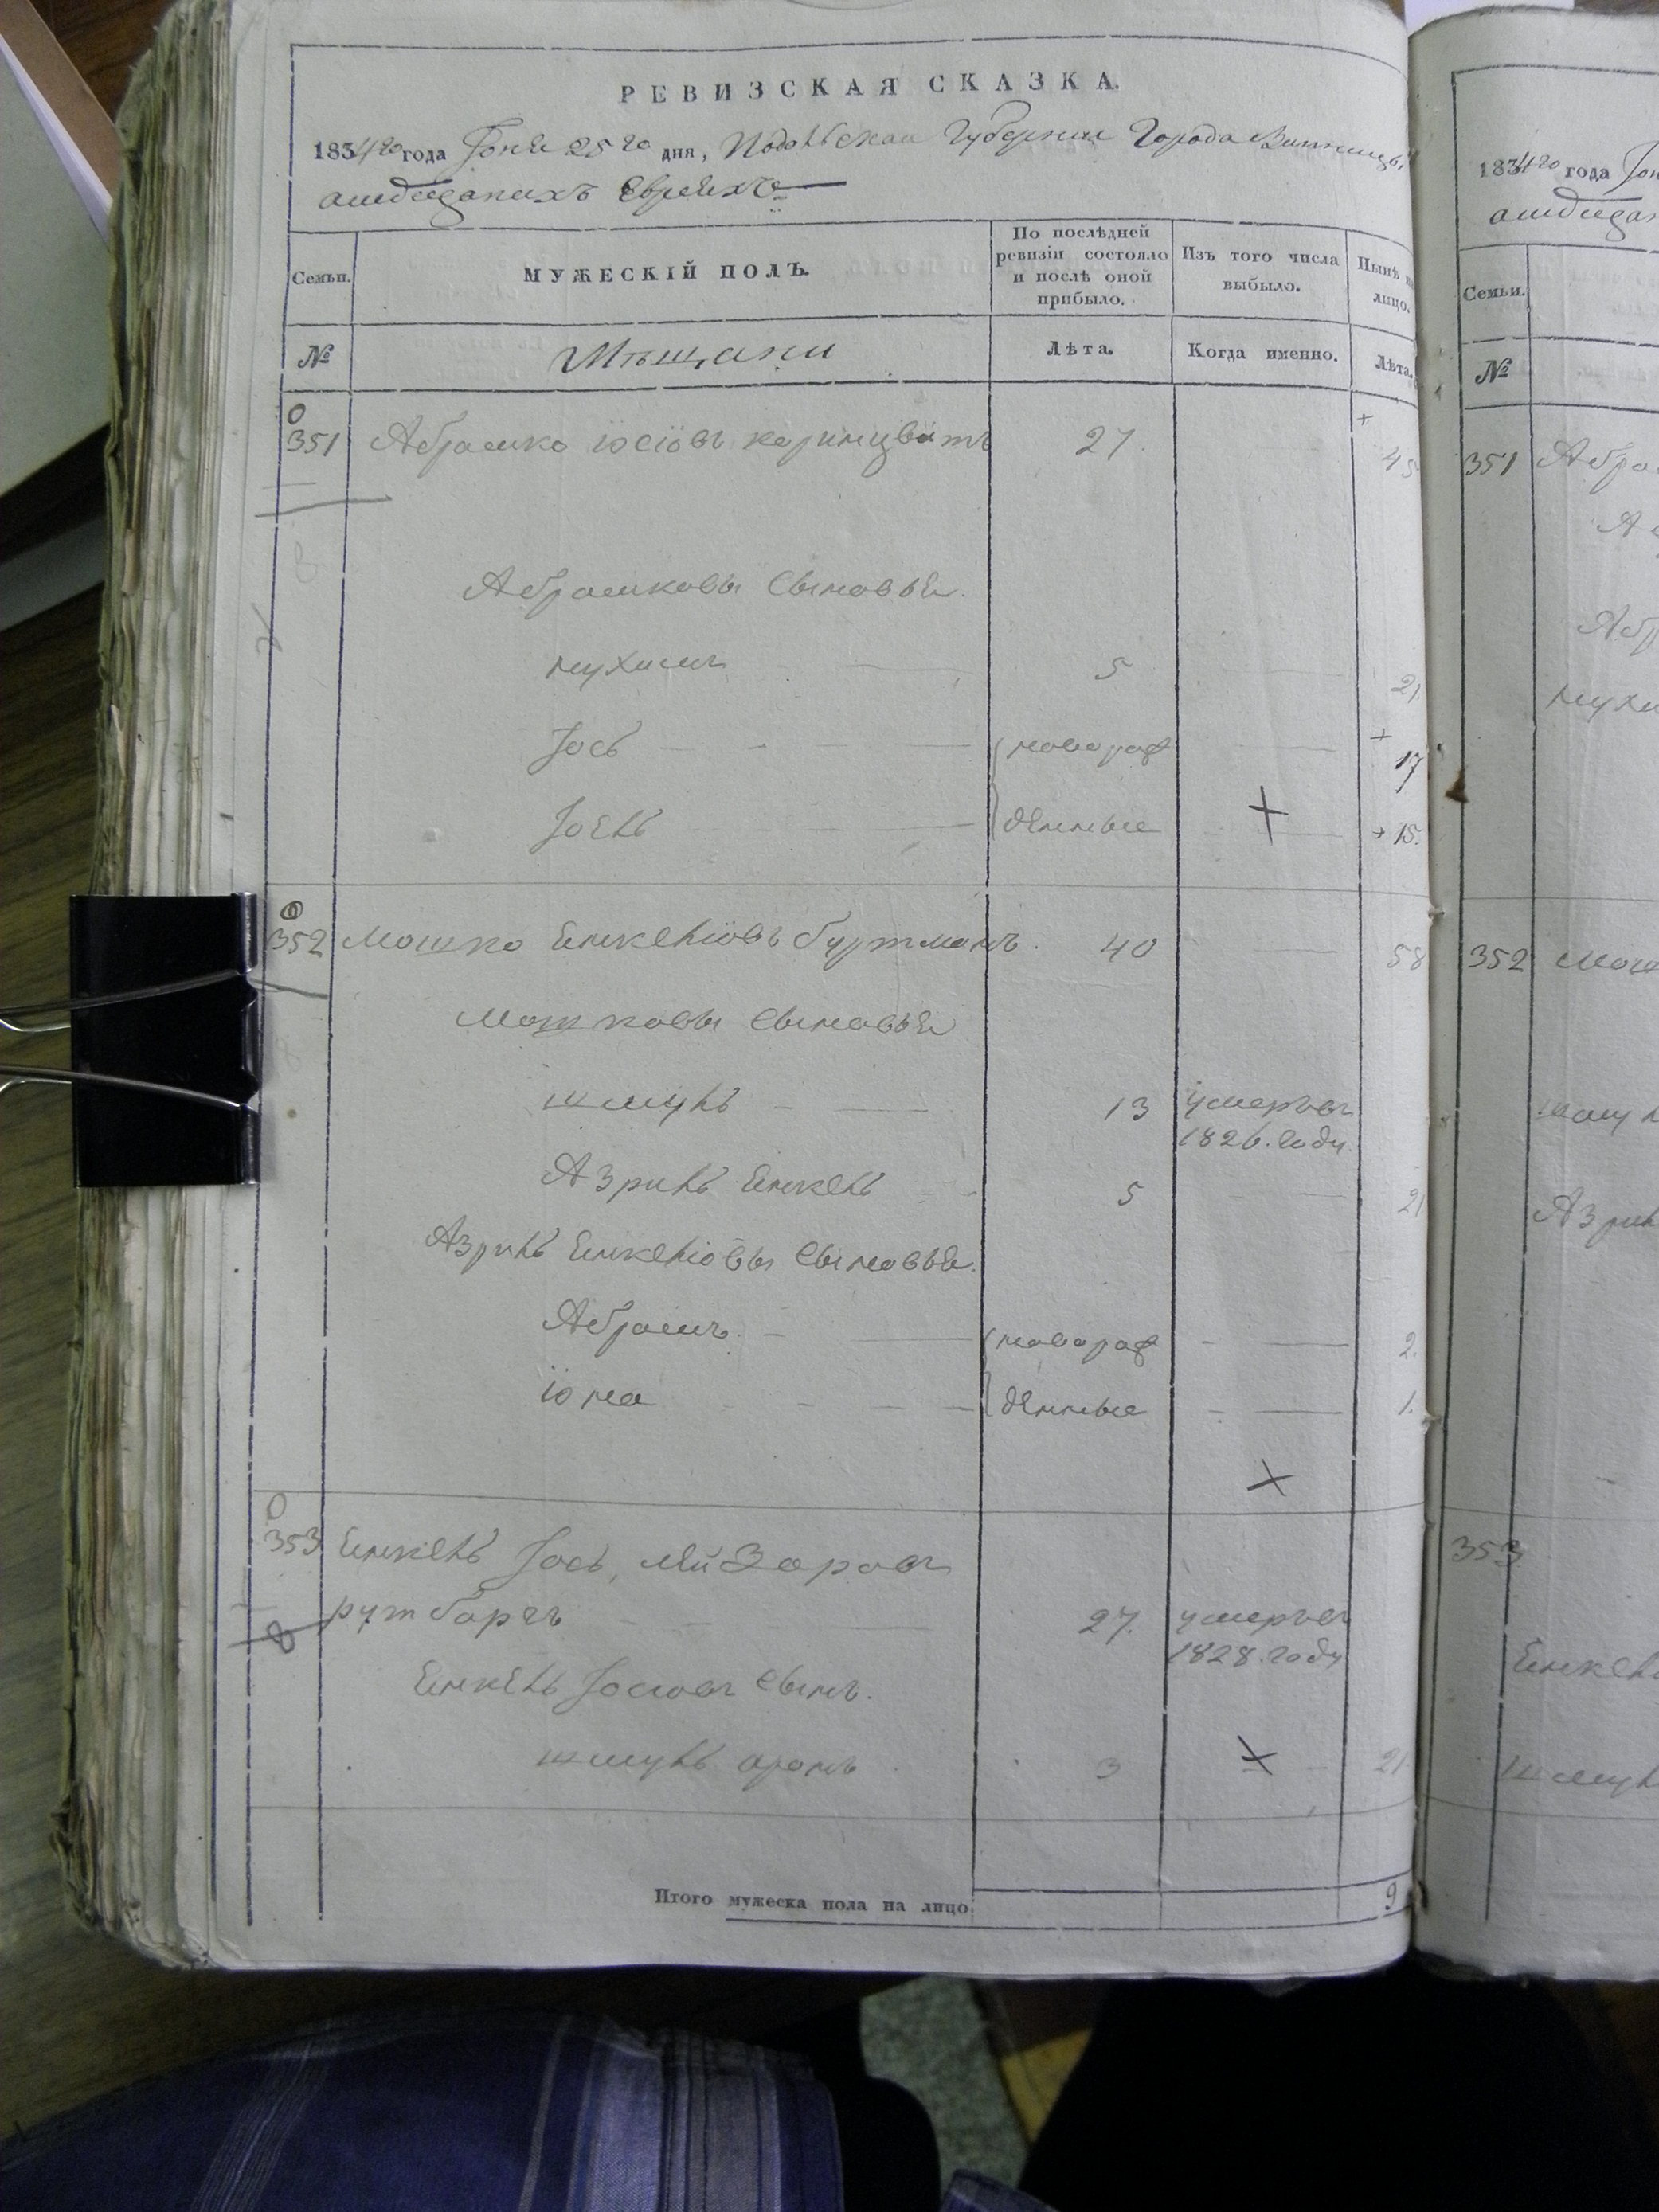 РЕВИЗСКАЯ СКАЗКА.
1834го года Іюня 25го дня, Подольской Губернии Города Винницы
Евреяхъ
Семьи.
МУЖЕСКІЙ ПОЛЪ.
По послѣдней ревизіи состояло и послѣ оной прибыло.
Изъ того числа выбыло.
Нынѣ на лицо.
№
Мѣщани
Лѣта.
Когда именно.
Лѣта.
351 Абрамко Іосіовъ 27. 45
Абрамковы Сыновья.
Нухимъ 5 21
Іось новорож 17
Іоель денные 15.
352 Мошко Янкеліовъ Гуртманъ. 40 58
Мошковы Сыновья
Шмуль 13 умеръ въ
1826. году
Азриль Янкель 5 21
Азриль Янкеліовы Сыновья.
Абрамъ новорож 2.
Іона денные 1.
353 Янкель Іось, Лейзоровъ
27. умеръ въ
1828. году
Янкель Іосіовъ Сынъ.
Шмуль Аронъ 3 21
Итого мужеска пола на лицо 9
1834го года Іюн
Семьи.
№
351 Абра
Абр
Нухи
352 Мош
Шмул
Азрил
353
Янкель
Шмул